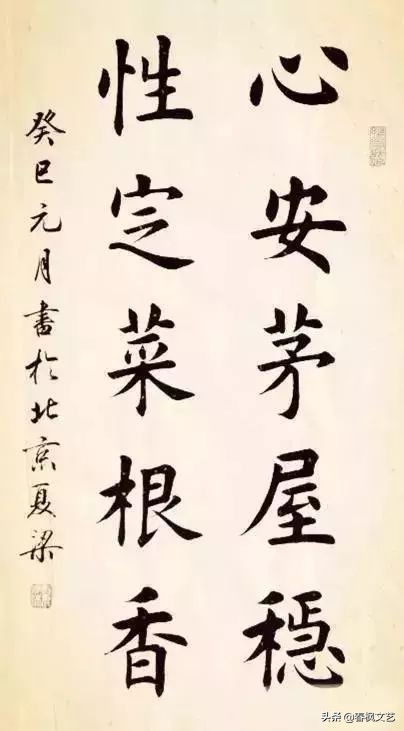 心安茅屋穩
性定菜根香
癸巳元月書於北京夏梁
头条 @春枫文艺